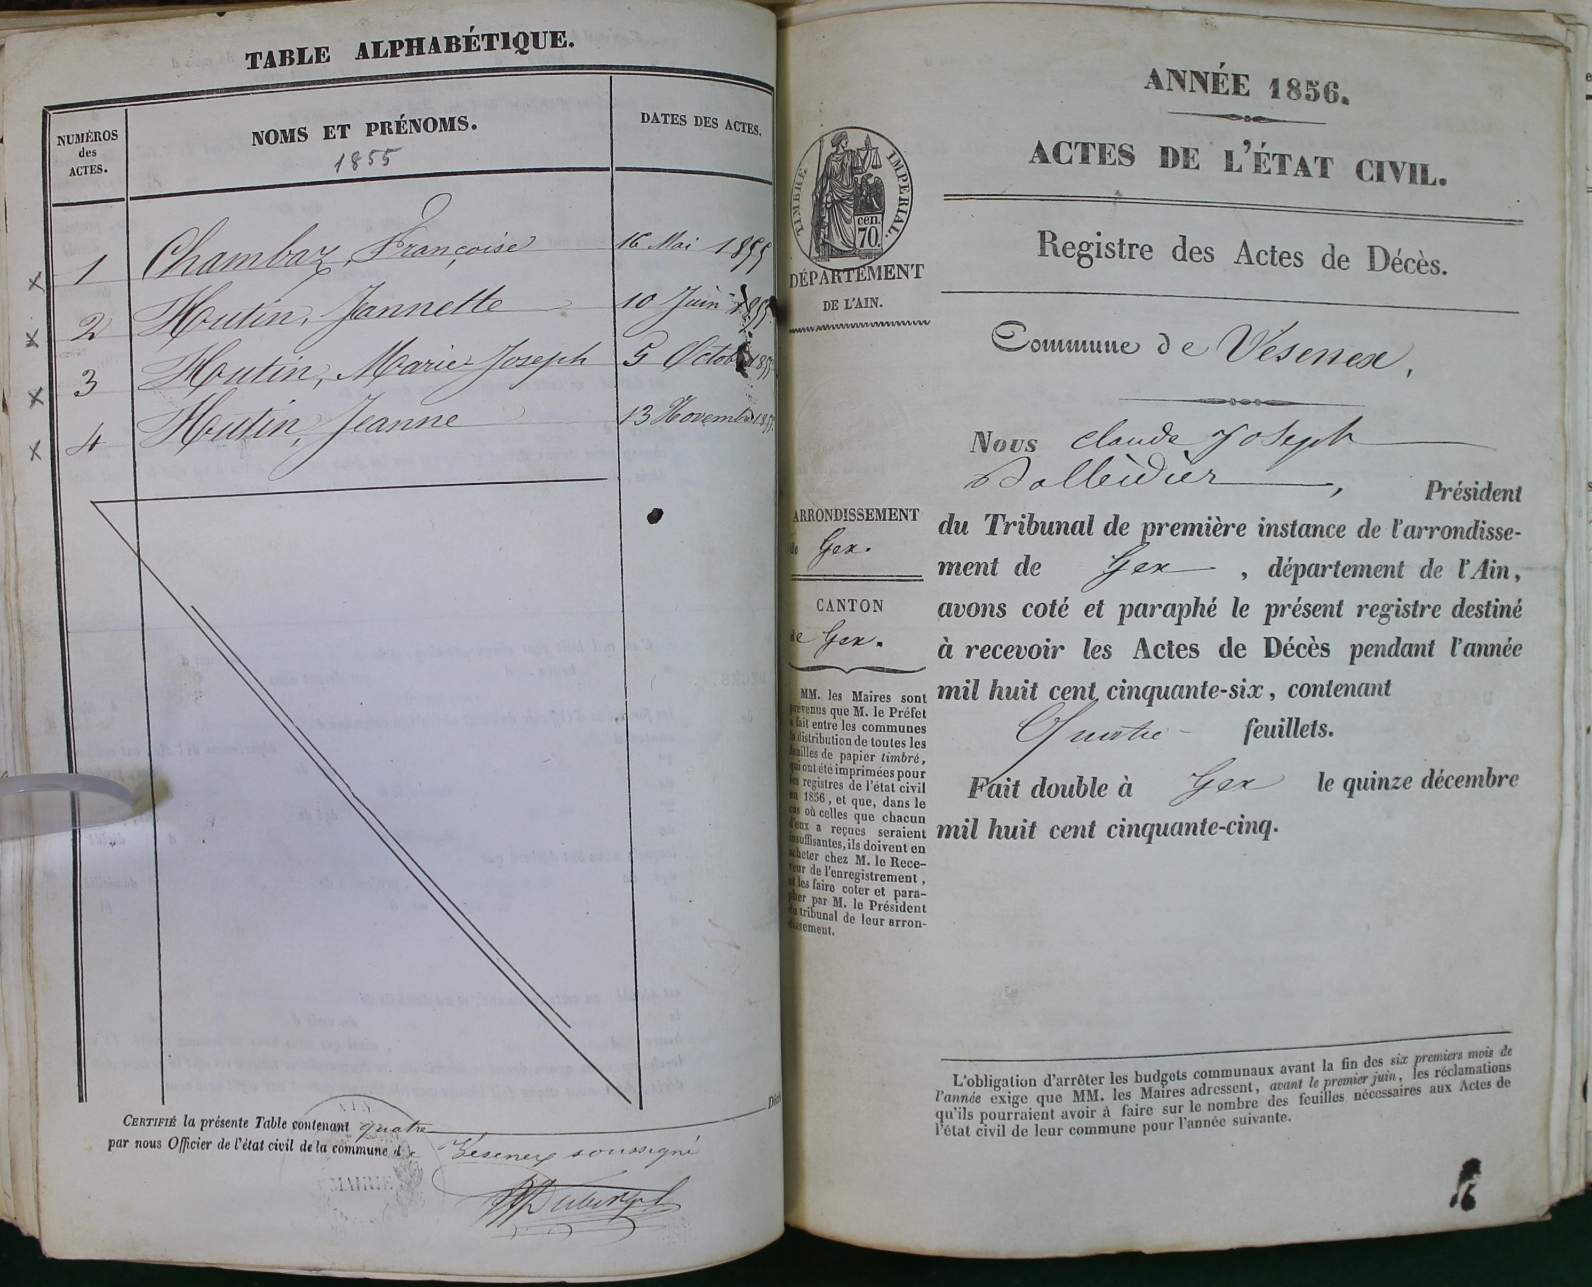 TABLE ALPHABÉTIQUE.
NUMÉROS
des
ACTES.
NOMS ET PRÉNOMS.
1855
DATES DES ACTES.
1 Chambaz, Françoise 16 Mai 1855
2 Hutin, Jannette 10 Juin 1855
3 Hutin, Marie Joseph 5 Octob 1855
4 Hutin, Jeanne 13 Novembre 1855
Décès
CERTIFIÉ la présente Table contenant quatre
par nous Officier de l'état civil de la commune de Vésenex soussigné
AIN
MAIRIE
ANNÉE 1856.
ACTES DE L'ÉTAT CIVIL.
Registre des Actes de Décès.
TIMBRE IMPÉRIAL.
cen.
70.
DÉPARTEMENT
DE L'AIN.
Commune de Vésenex,
Nous Claude Joseph
, Président
du Tribunal de première instance de l'arrondisse-
ment de Gex, département de l'Ain,
avons coté et paraphé le présent registre destiné
à recevoir les Actes de Décès pendant l'année
mil huit cent cinquante-six, contenant
Quatre feuillets.
Fait double à Gex le quinze décembre
mil huit cent cinquante-cinq.
ARRONDISSEMENT
de Gex.
CANTON
de Gex.
MM. les Maires sont
prévenus que M. le Préfet
a fait entre les communes
la distribution de toutes les
feuilles de papier timbré,
qui ont été imprimées pour
les registres de l'état civil
en 1856, et que, dans le
cas où celles que chacun
d'eux a reçues seraient
insuffisantes, ils doivent en
acheter chez M. le Rece-
veur de l'enregistrement,
et les faire coter et para-
pher par M. le Président
du tribunal de leur arron-
dissement.
L'obligation d'arrêter les budgets communaux avant la fin des six premiers mois de
l'année exige que MM. les Maires adressent, avant le premier juin, les réclamations
qu'ils pourraient avoir à faire sur le nombre des feuilles nécessaires aux Actes de
l'état civil de leur commune pour l'année suivante.